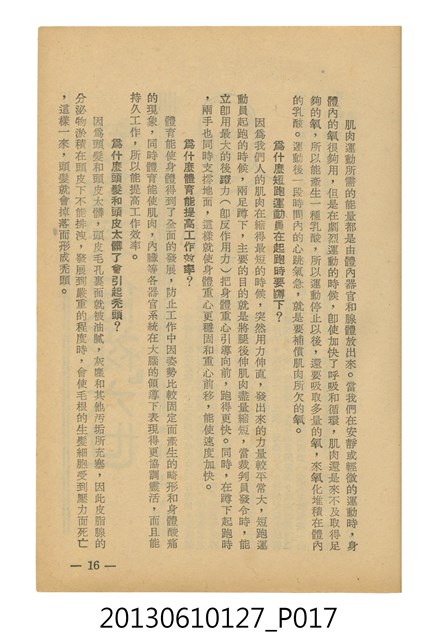 肌肉運動所需的能量都是由體內器官和腺體放出來。當我們在安靜或輕微的運動時，身
體內的氧很夠用，但是在劇烈運動的時候，卽使加快了呼吸和循環，肌肉還是來不及取得足
夠的氧，所以能產生一種乳酸，所以運動停止以後，還要吸取多量的氧，來氧化堆積在體內
的乳酸。運動後一段時間內的心跳氣急，就是要補償肌肉所欠的氧。
爲什麼短跑運動員在起跑時要蹲下？
因爲我們人的肌肉在縮得最短的時候，突然用力伸直，發出來的力量較平常大，短跑運
動員起跑的時候，兩足蹲下，主要的目的就是將腿後伸肌肉盡量縮短，當裁判員發令時，能
立卽用最大的後蹬力（卽反作用力）把身體重心引導向前，跑得更快。同時，在蹲下起跑時
，兩手也同時支撐地面，這樣就使身體重心更穩固和重心前移，能使速度加快。
爲什麼體育能提高工作效率？
體育能使身體得到了全面的發展，防止工作中因姿勢比較固定而產生的畸形和身體酸痛
的現象，同時體育能使肌肉，內臟等各器官系統在大腦的領導下表現得更協調靈活，而且能
持久工作，所以能提高工作效率。
爲什麼頭髮和頭皮太髒了會引起禿頭？
因爲頭髮和頭皮太髒，頭皮毛孔裏面就被油膩，灰塵和其他汚垢所充塞，因此皮脂腺的
分泌物淤積在頭皮下不能排洩，發展到嚴重的程度時，會使毛根的生髮細胞受到壓力而死亡
，這樣一來，頭髮就會掉落而形成禿頭。
— 16 —
20130610127_P017